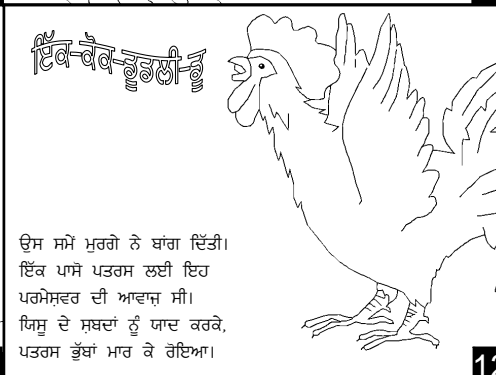 ਇੱਕ-ਕੋਕ-ਡੂਡਲੀ-ਡੂ
ਉਸ ਸਮੇਂ ਮੁਰਗੇ ਨੇ ਬਾਂਗ ਦਿੱਤੀ।
ਇੱਕ ਪਾਸੋ ਪਤਰਸ ਲਈ ਇਹ
ਪਰਮੇਸ਼ਵਰ ਦੀ ਆਵਾਜ਼ ਸੀ।
ਯਿਸੂ ਦੇ ਸ਼ਬਦਾਂ ਨੂੰ ਯਾਦ ਕਰਕੇ,
ਪਤਰਸ ਭੁੱਬਾਂ ਮਾਰ ਕੇ ਰੋਇਆ।